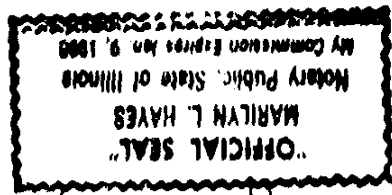 "OFFICIAL SEAL"
MARILYN L. HAYES
Notary Public, State of Illinois
My Commission Expires Jan. 9,